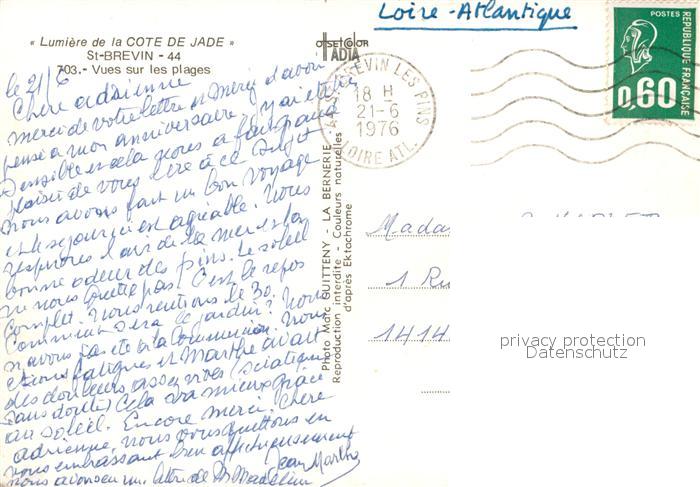 Loire-Atlantique
« Lumière de la COTE DE JADE »
St-BREVIN - 44
703.- Vues sur les plages
OFFSET COLOR
IADIA
POSTES
REPUBLIQUE FRANÇAISE
0,60
ST-BREVIN LES PINS
18 H
21-6
1976
LOIRE ATL.
le 21/6
Chère adrienne
merci de votre lettre et merci d'avoir
pensé a mon anniversaire, j'y ai été
sensible et cela nous a fait
plaisir de vous lire à ce sujet
Nous avons fait un bon voyage
et le séjour ici est agréable. Nous
respirons l'air de la mer et la
bonne odeur des pins. Le soleil
ne nous quitte pas. C'est le repos
complet. Nous rentrons le 30.
Comment sera le jardin ? Nous
n'avons pas été à la communion. Nous
étions fatigués et Marthe avait
des douleurs assez vives (sciatique
sans doute) Cela va mieux grâce
au soleil. Encore merci, chère
adrienne, nous vous quittons en
vous embrassant bien affectueusement
Jean Marthe
nous avons eu une lettre de
Photo Marc GUITTENY - LA BERNERIE
Reproduction interdite - Couleurs naturelles
d'après Ektachrome
Mada
1 Ru
1414
privacy protection
Datenschutz